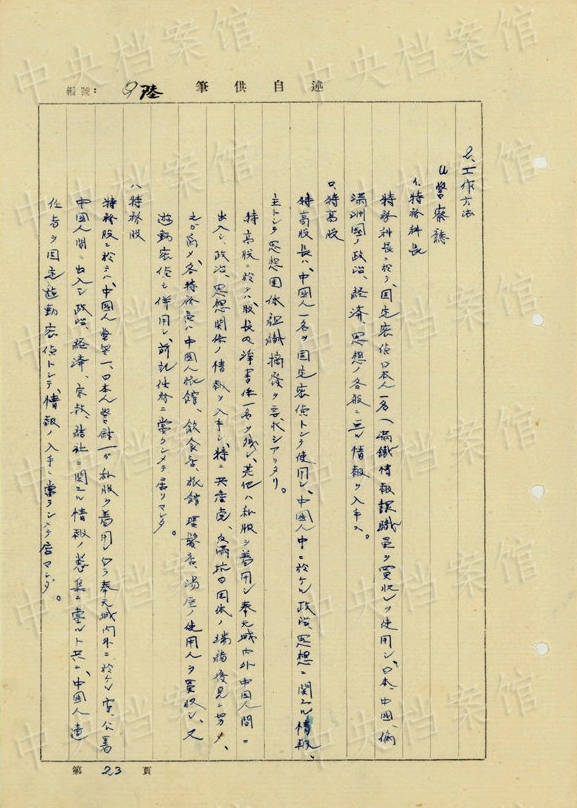 編號：9陸 筆供自述
2.工作方法
(1)警察廳
イ、特務科長
特務科長ニ於テ、固定密偵日本人一名(満鉄情報課職員ヲ買収シ)ヲ使用シ、日本、中国、偽
満洲國ノ政治、経済、思想ノ各般ニ亘ル情報ヲ入手ス。
ロ、特高股
特高股長ハ、中国人一名ヲ固定密偵トシテ使用シ、中国人中ニ於ケル政治、思想ニ関スル情報、
主トシテ思想団体組織摘発ヲ
特高股ニ於テハ、股長及浄書係一名ヲ残シ、其他ハ私服ヲ着用シ奉天城内外中国人間ニ
出入シ、政治、思想関係ノ情報ヲ入手シ、特ニ共産党、反満抗日団体ノ発見ニ努メ、
之カ為メ、各特務ハ中国人旅館、飲食店、理髪店、湯屋ノ使用人ヲ買収シ、又
遊動密偵ヲ併用シ、前記任務ニ当ラシメテ居リマシタ。
ハ、特務股
特務股ニ於テハ、中国人警尉一、日本人警尉一カ私服ヲ着用シ乍ラ奉天城内外ニ於ケル官、公署
中国人間ニ出入シ、政治、経済、宗教、結社ニ関スル情報ノ蒐集ニ当ルト共ニ、中国人
任者ヲ固定遊動密偵トシテ、情報ノ入手ニ当ラシメテ居マシタ。
第 23 頁
中央档案馆